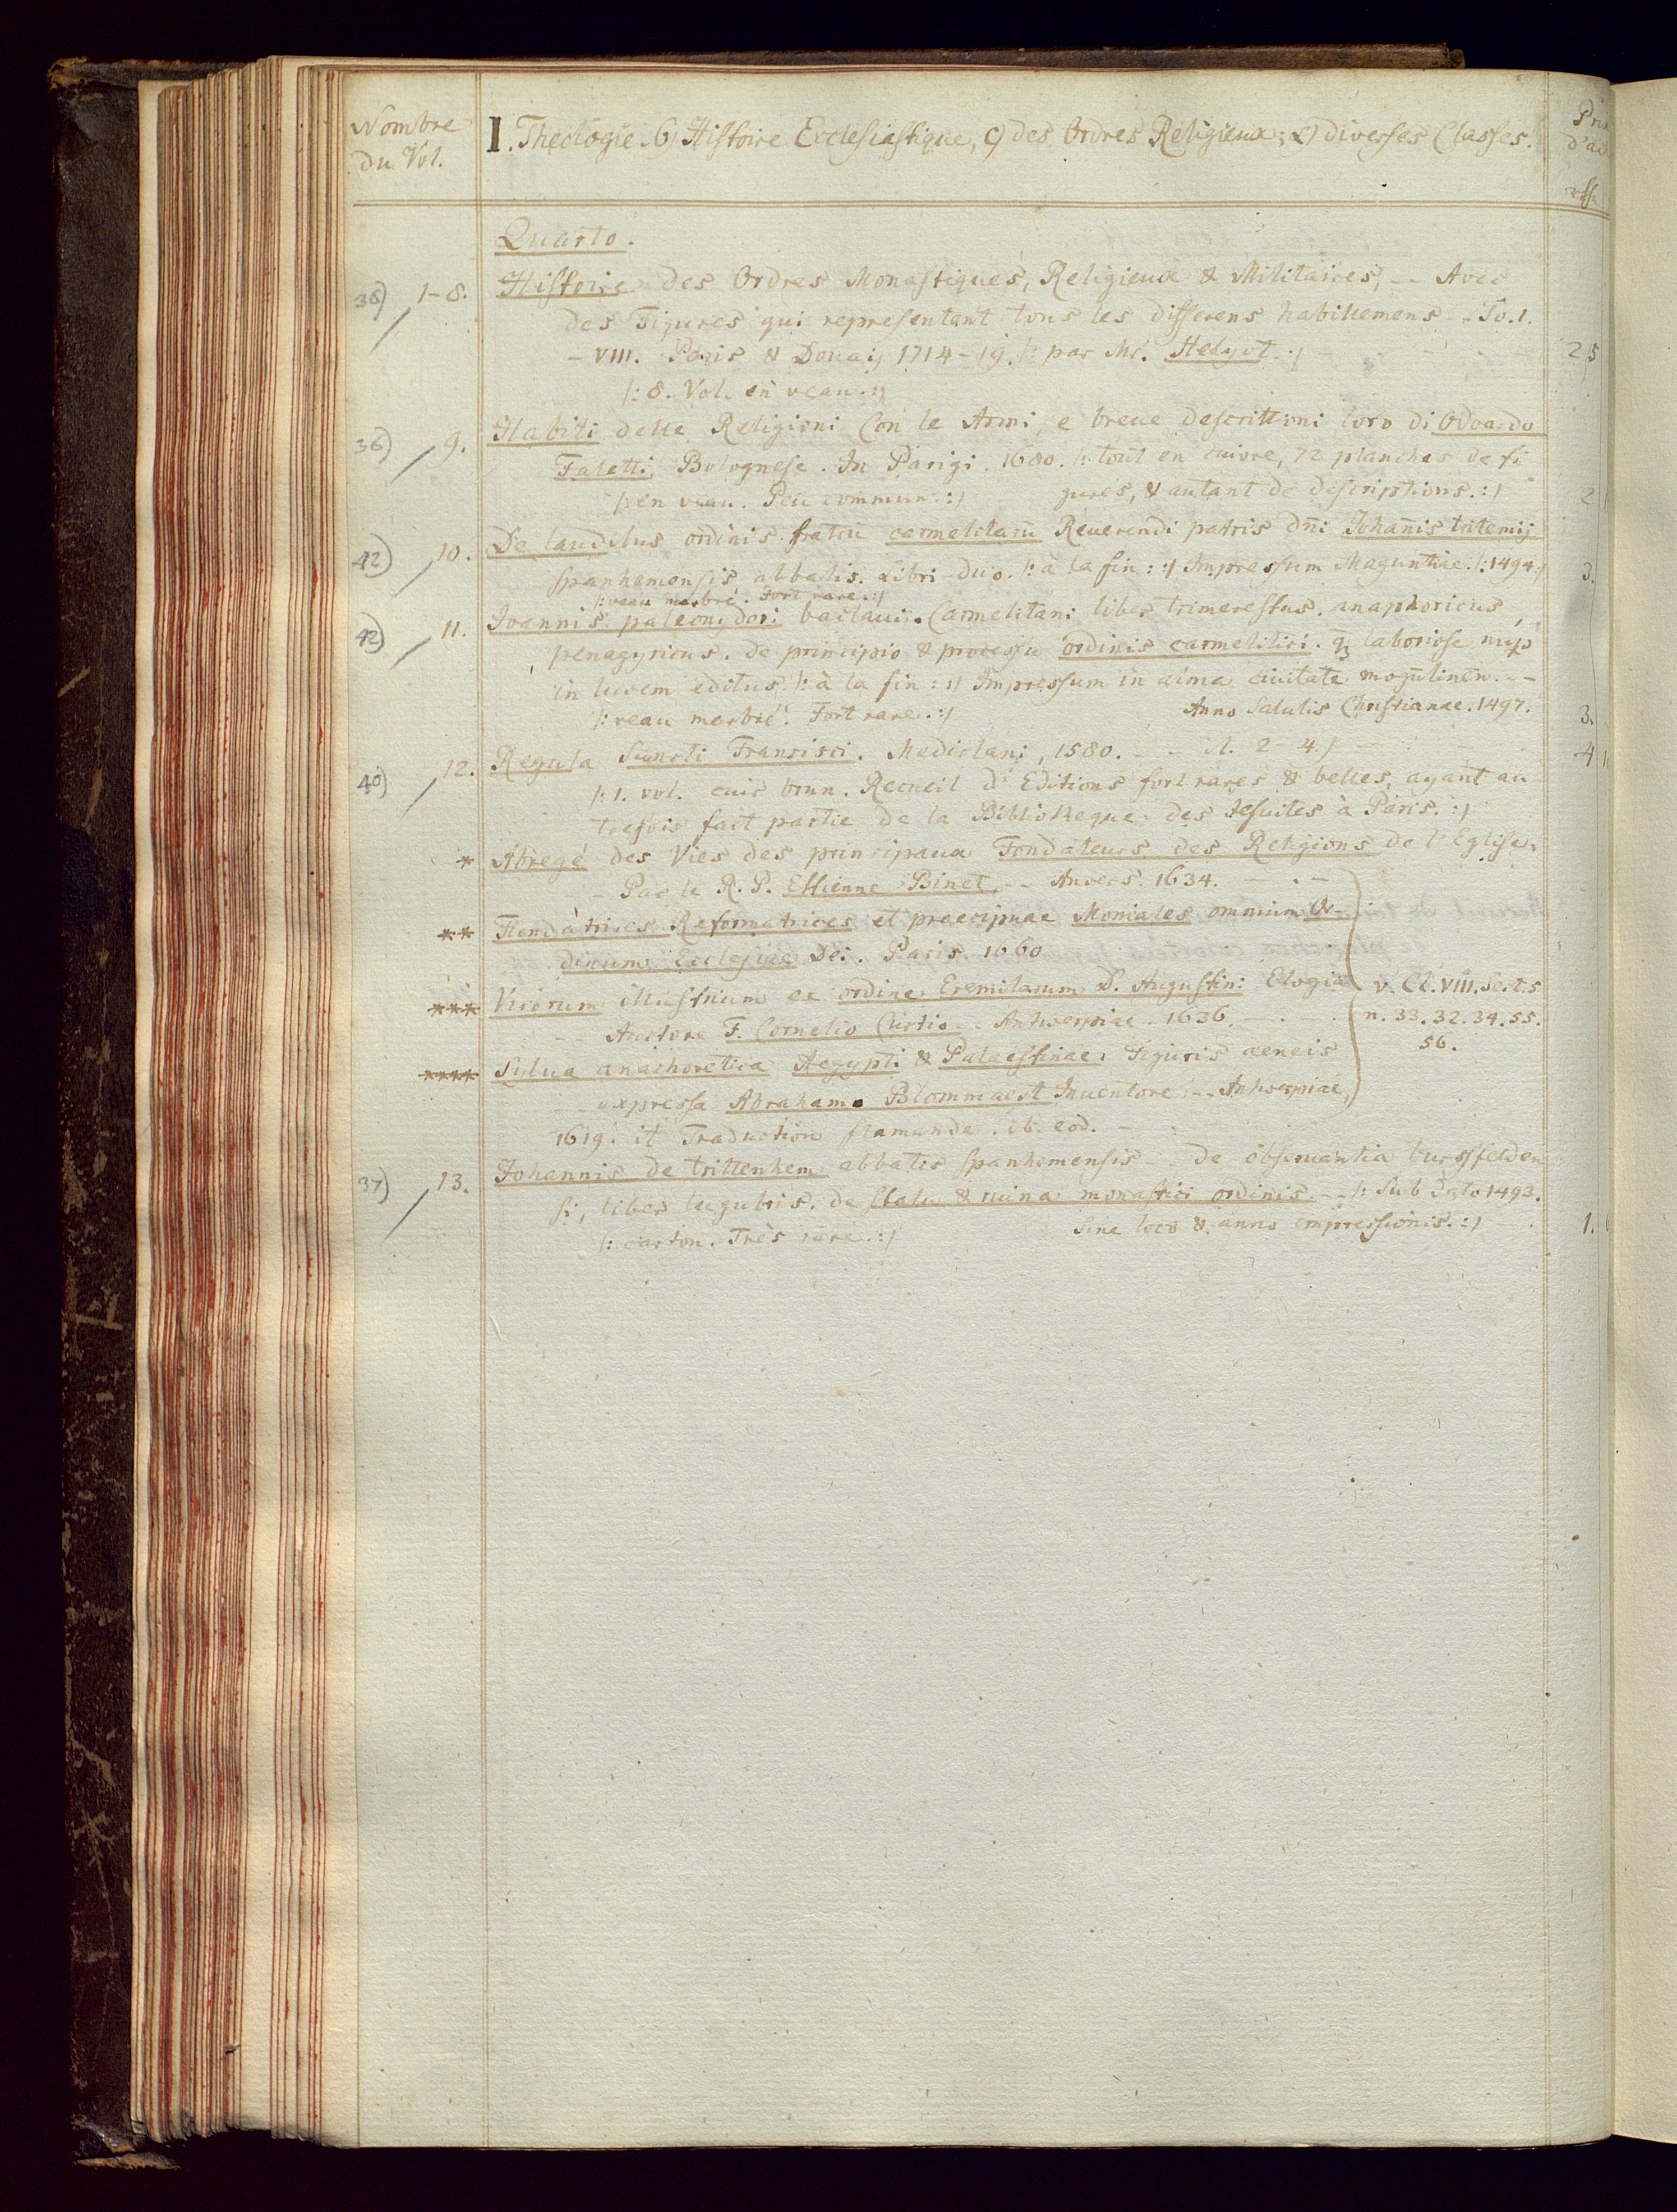 Nombre
du Vol.
I. Theologie. 6) Histoire Ecclesiastique, c) des Ordres Religieux; α) diverses Classes.
Quarto.
1-8. Histoire des Ordres Monastiques, Religieux & Militaires, -- Avec
des Figures qui representent tous les differens habillemens -- To. I.
- VIII. Paris & Douay 1714-19. |: par Mr. Helyot. :| 25
|: 8. Vol. en veau. :|
36) 9. Habiti delle Religioni Con le Armi, e breue descrittioni loro di Odoardo
Faletti, Bolognese. In Parigi. 1680. |: tout en cuivre, 72 planches de fi
|: en veau. Peu commun. :| gures, & autant de descriptions. :| 2
42) 10. De laudibus ordinis fratrū carmelitarū Reuerendi patris dn̄i Johan̄is tritemij
spanhemensis abbatis. Libri duo. |: à la fin: :| Impressum Maguntiae. |: 1494. :| 3.
|: veau marbré. Fort rare. :|
42) 11. Ioannis paleonydori bataui. Carmelitani liber trimerestus. anaphoricus
penagyricus. de principio & processu ordinis carmelitici. laboriose
in lucem editus |: à la fin: :| Impressum in alma ciuitate mogūtinen̄. --
|: veau marbré. Fort rare. :| Anno Salutis Christianae. 1497. 3.
40) 12. Regula Sancti Francisci. Mediolani, 1580. -- 2-4.) 4
|: 1. vol. cuir brun. Recueil d'Editions fort rares & belles, ayant au
trefois fait partie de la Bibliotheque des Jesuites à Paris. :|
* Abregé des Vies des principaux Fondateurs des Religions de l'Eglise,
-- Par le R. P. Estienne Binet, -- Anvers. 1634. -
** Fundatrices Reformatrices et praecipuae Moniales omnium Or-
dinum Ecclesiae Dei. Paris. 1660
*** Virorum illustrium ex ordine Eremitarum D. Augustini Elogia v. Cl. VIII. Sect. 5
-- Auctore F. Cornelio Curtio -- Antwerpiae. 1636. n. 33. 32. 34. 55.
56.
**** Sylua anachoretica Aegypti & Palaestinae. Figuris aeneis
expressa Abrahamo Blommaert Inuentore. -- Antwerpiae,
1619. it Traduction flamande. ib. eod. -
37) 13. Johannis de trittenhem abbatis spanhemensis -- de obseruantia bursfelden
si, liber lugubris. de statu & ruina monastici ordinis -- |: Sub Dato 1493.
|: carton. Très rare. :| Sine loco & anno impressionis. :| 1.